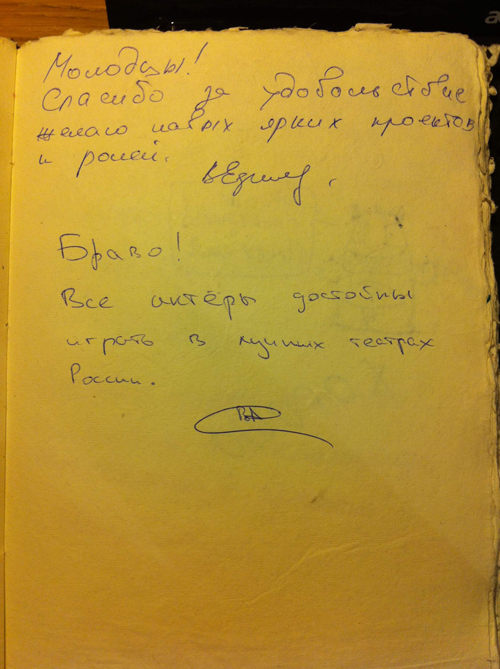 Молодцы!
Спасибо за удовольствие
желаю новых ярких проектов
и ролей.
Браво!
Все актёры достойны
играть в лучших театрах
России.
ВА